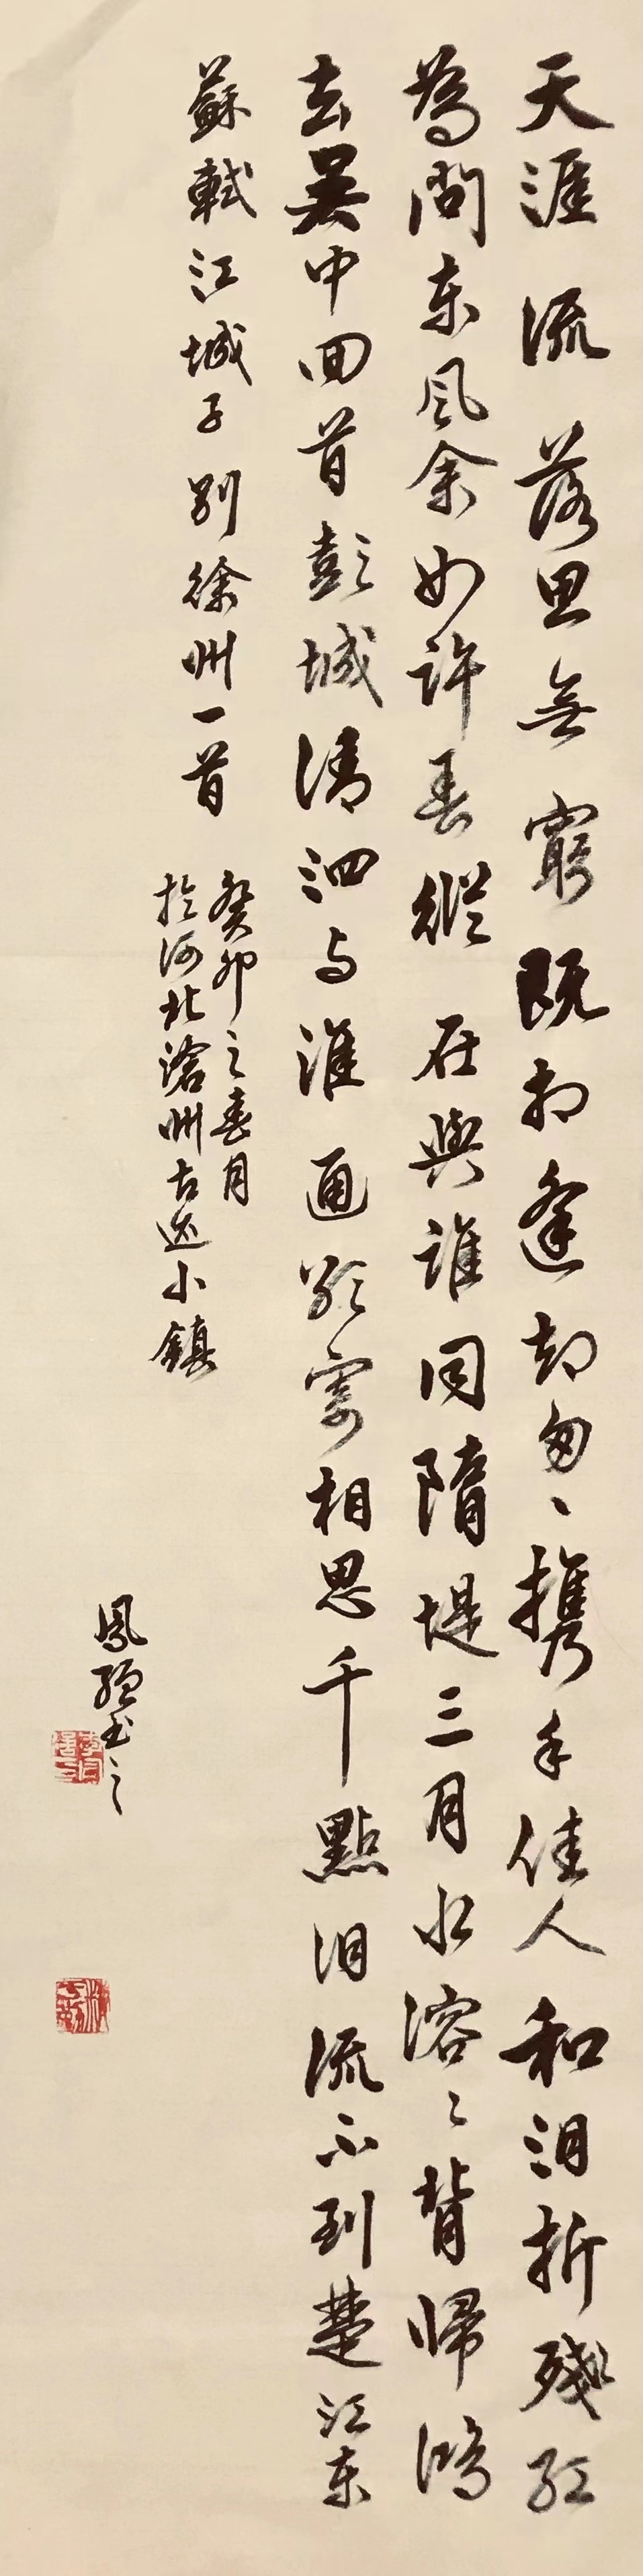 天涯流落思無窮既相逢却匆々攜手佳人和泪折殘紅
為問东風余如許春縱在與誰同隋堤三月水溶々背帰鴻
去吴中回首彭城清泗与淮通欲寄相思千點泪流不到楚江东
蘇軾江城子别徐州一首
癸卯之春月
於河北滄州古运小鎮
鳳强书之